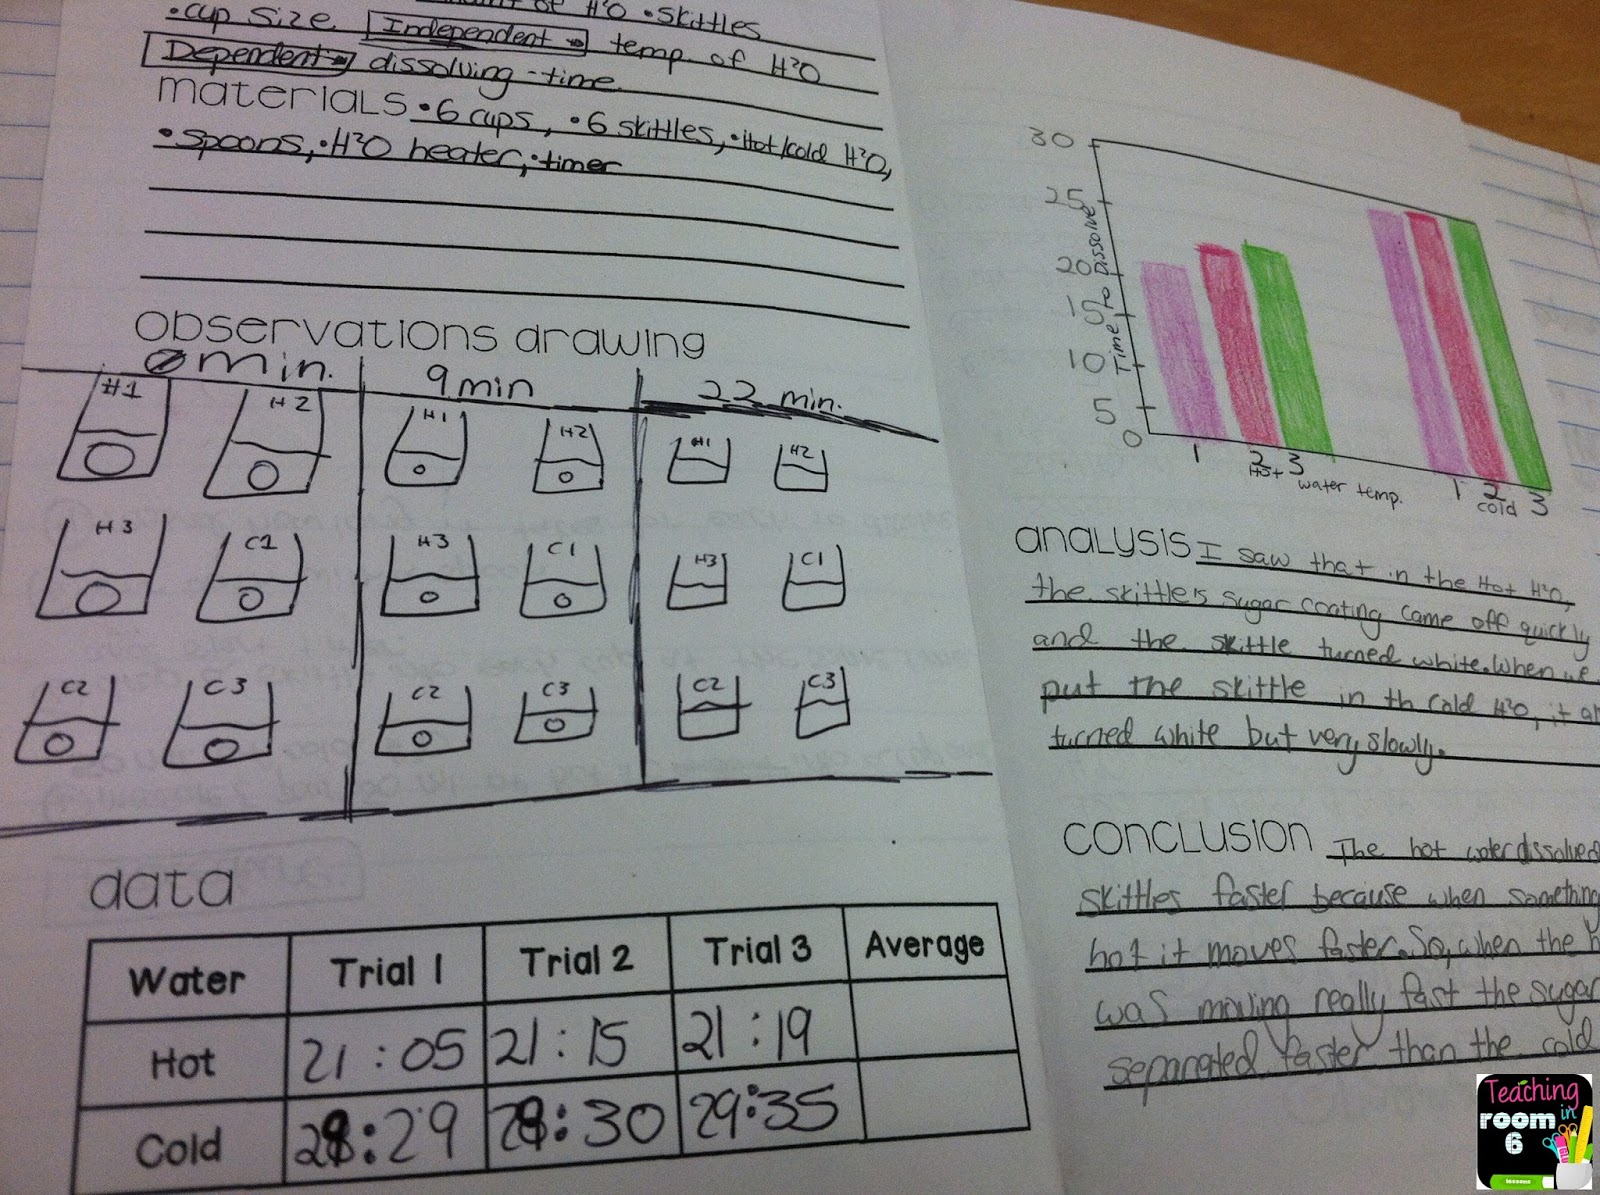 of H²O • skittles
• cup size Independent → temp. of H²O
Dependent → dissolving-time
materials • 6 cups, • 6 skittles, • Hot/cold H²O,
• spoons, • H²O heater, • timer
observations drawing
0 min. 9 min 22 min.
H1 H2 H1 H2 H1 H2
H3 C1 H3 C1 H3 C1
C2 C3 C2 C3 C2 C3
data
Water Trial 1 Trial 2 Trial 3 Average
Hot 21:05 21:15 21:19
Cold 28:29 29:30 29:35
30
25
20
15
10
5
0
Time to Dissolve
1 2 3 1 2 3
Hot cold
water temp.
analysis I saw that in the Hot H²O,
the skittles sugar coating came off quickly
and the skittle turned white. When we
put the skittle in th cold H²O, it al
turned white but very slowly.
conclusion The hot water dissolved
skittles faster because when something
hot it moves faster. So, when the h
was moving really fast the sugar
separated faster than the cold
Teaching
in
room
6
lessons